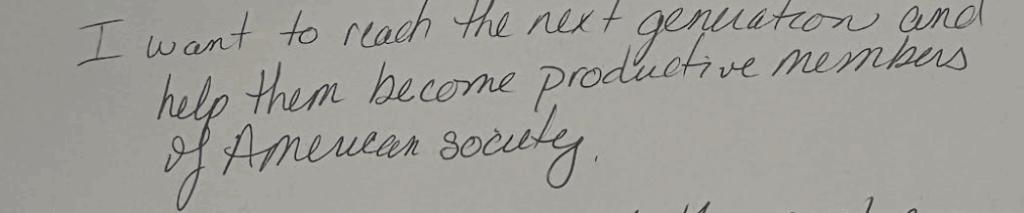 I want to reach the next generation and
help them become productive members
of American society.